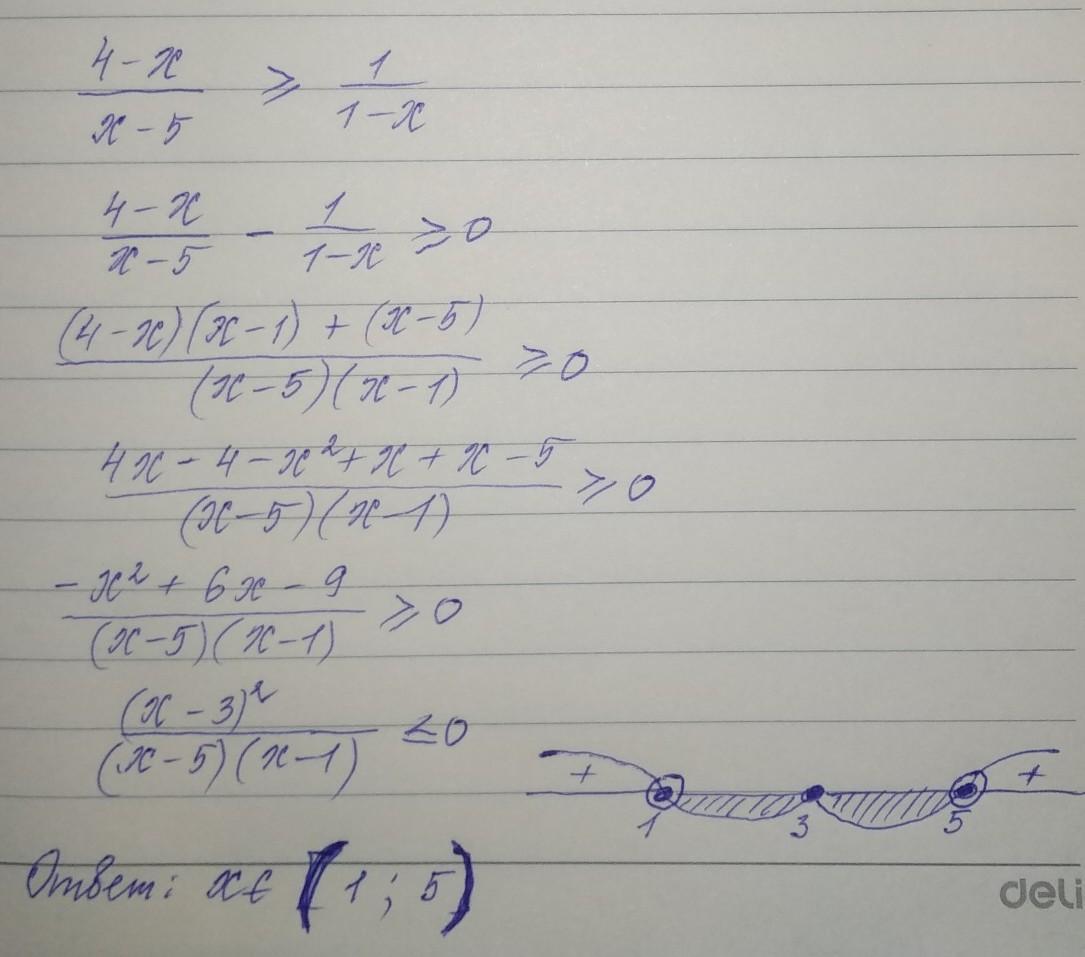 (4-x)/(x-5) ⩾ 1/(1-x)
(4-x)/(x-5) - 1/(1-x) ⩾ 0
((4-x)(x-1) + (x-5))/((x-5)(x-1)) ⩾ 0
(4x - 4 - x² + x + x - 5)/((x-5)(x-1)) ⩾ 0
(-x² + 6x - 9)/((x-5)(x-1)) ⩾ 0
(x-3)²/((x-5)(x-1)) ≤ 0
+ +
1 3 5
Ответ: x ∈ (1; 5)
deli